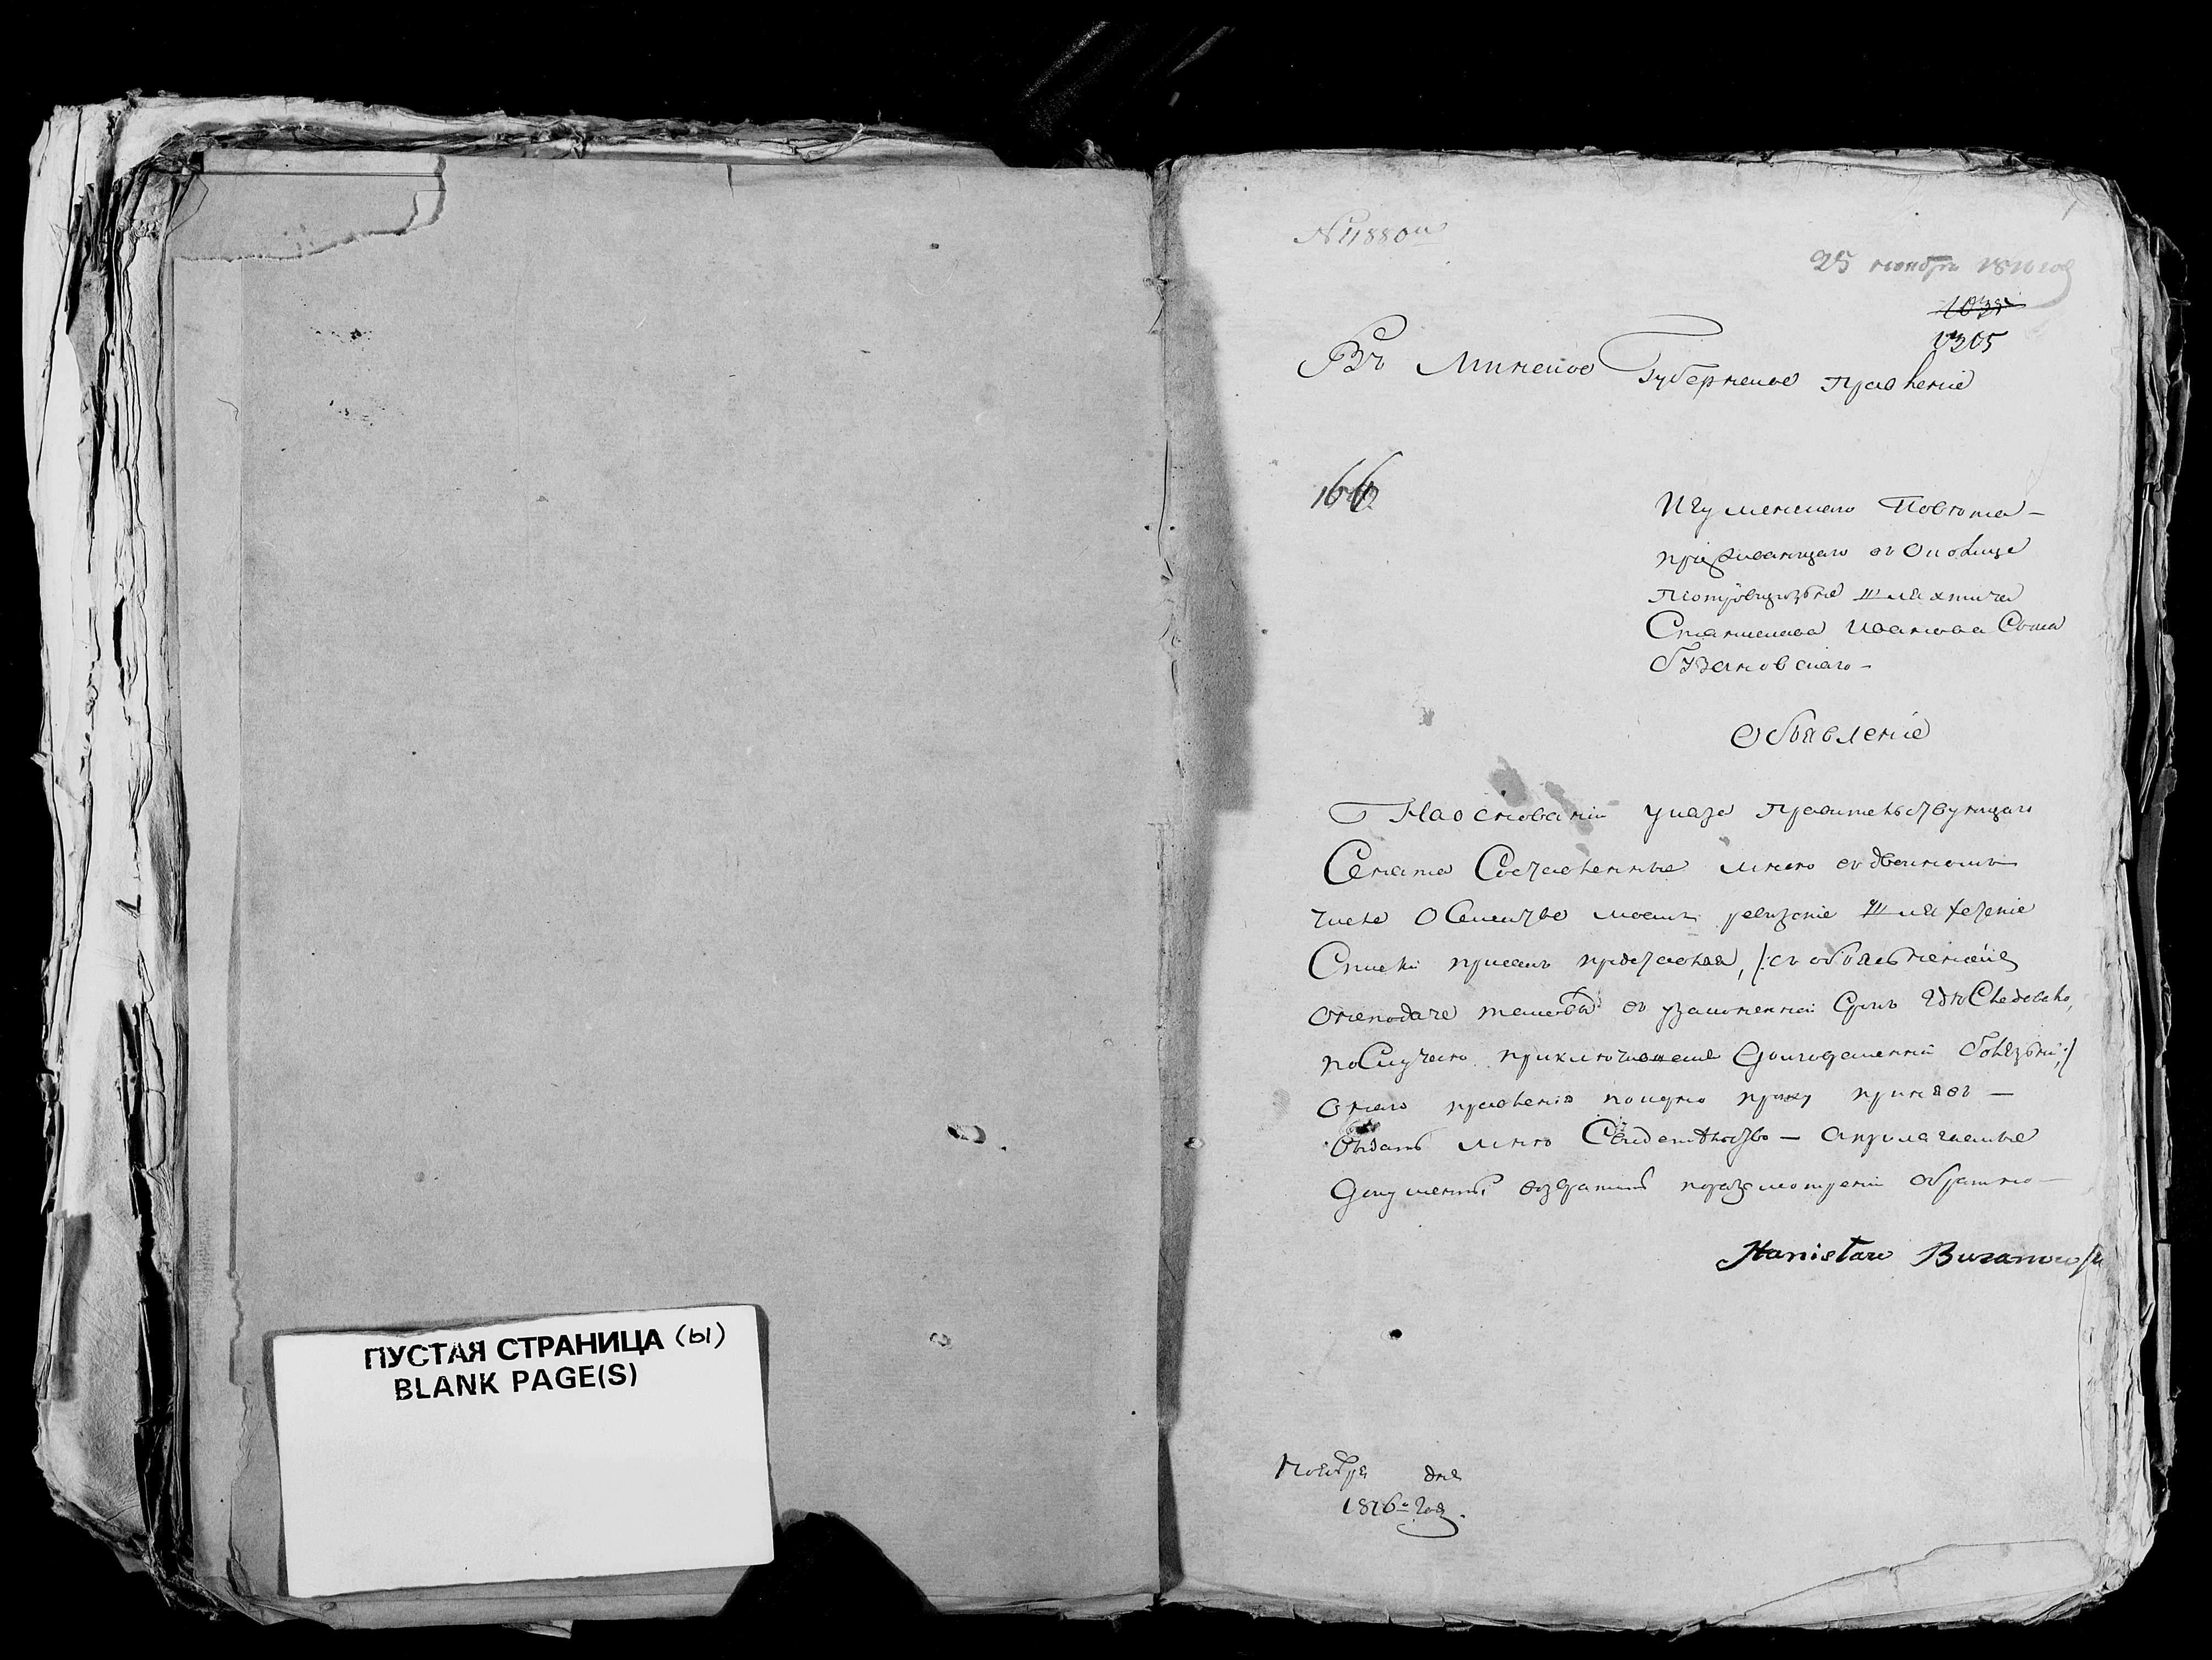 ПУСТАЯ СТРАНИЦА (ы)
BLANK PAGE(S)
25 ноября 1816 год
1035
1305
Въ Минское Губернское правленіе
166
Игуменскаго Повета
проживающаго въ Околице
шляхтича
Станислава Иванова Сына
Бузановскаго
Объявленіе
На основаніи указа Правительствующаго
Сената Составленные мною въ двойномъ
числе О Семействе моемъ ревизскіе Шляхетскіе
Списки присемъ представляя, /:съ объясненіемъ
онеподаче таковыхъ въ узаконенной Срокъ где Следовало,
по Случаю приключившейся долговременной болезни:/
Оного правленія покорно прошу принявъ
выдать мне Свидетельство — а прилагаемые
Документы возвратить поразсмотреніи обратно
Stanisław Buzanowski
Ноября дня
1816го года.